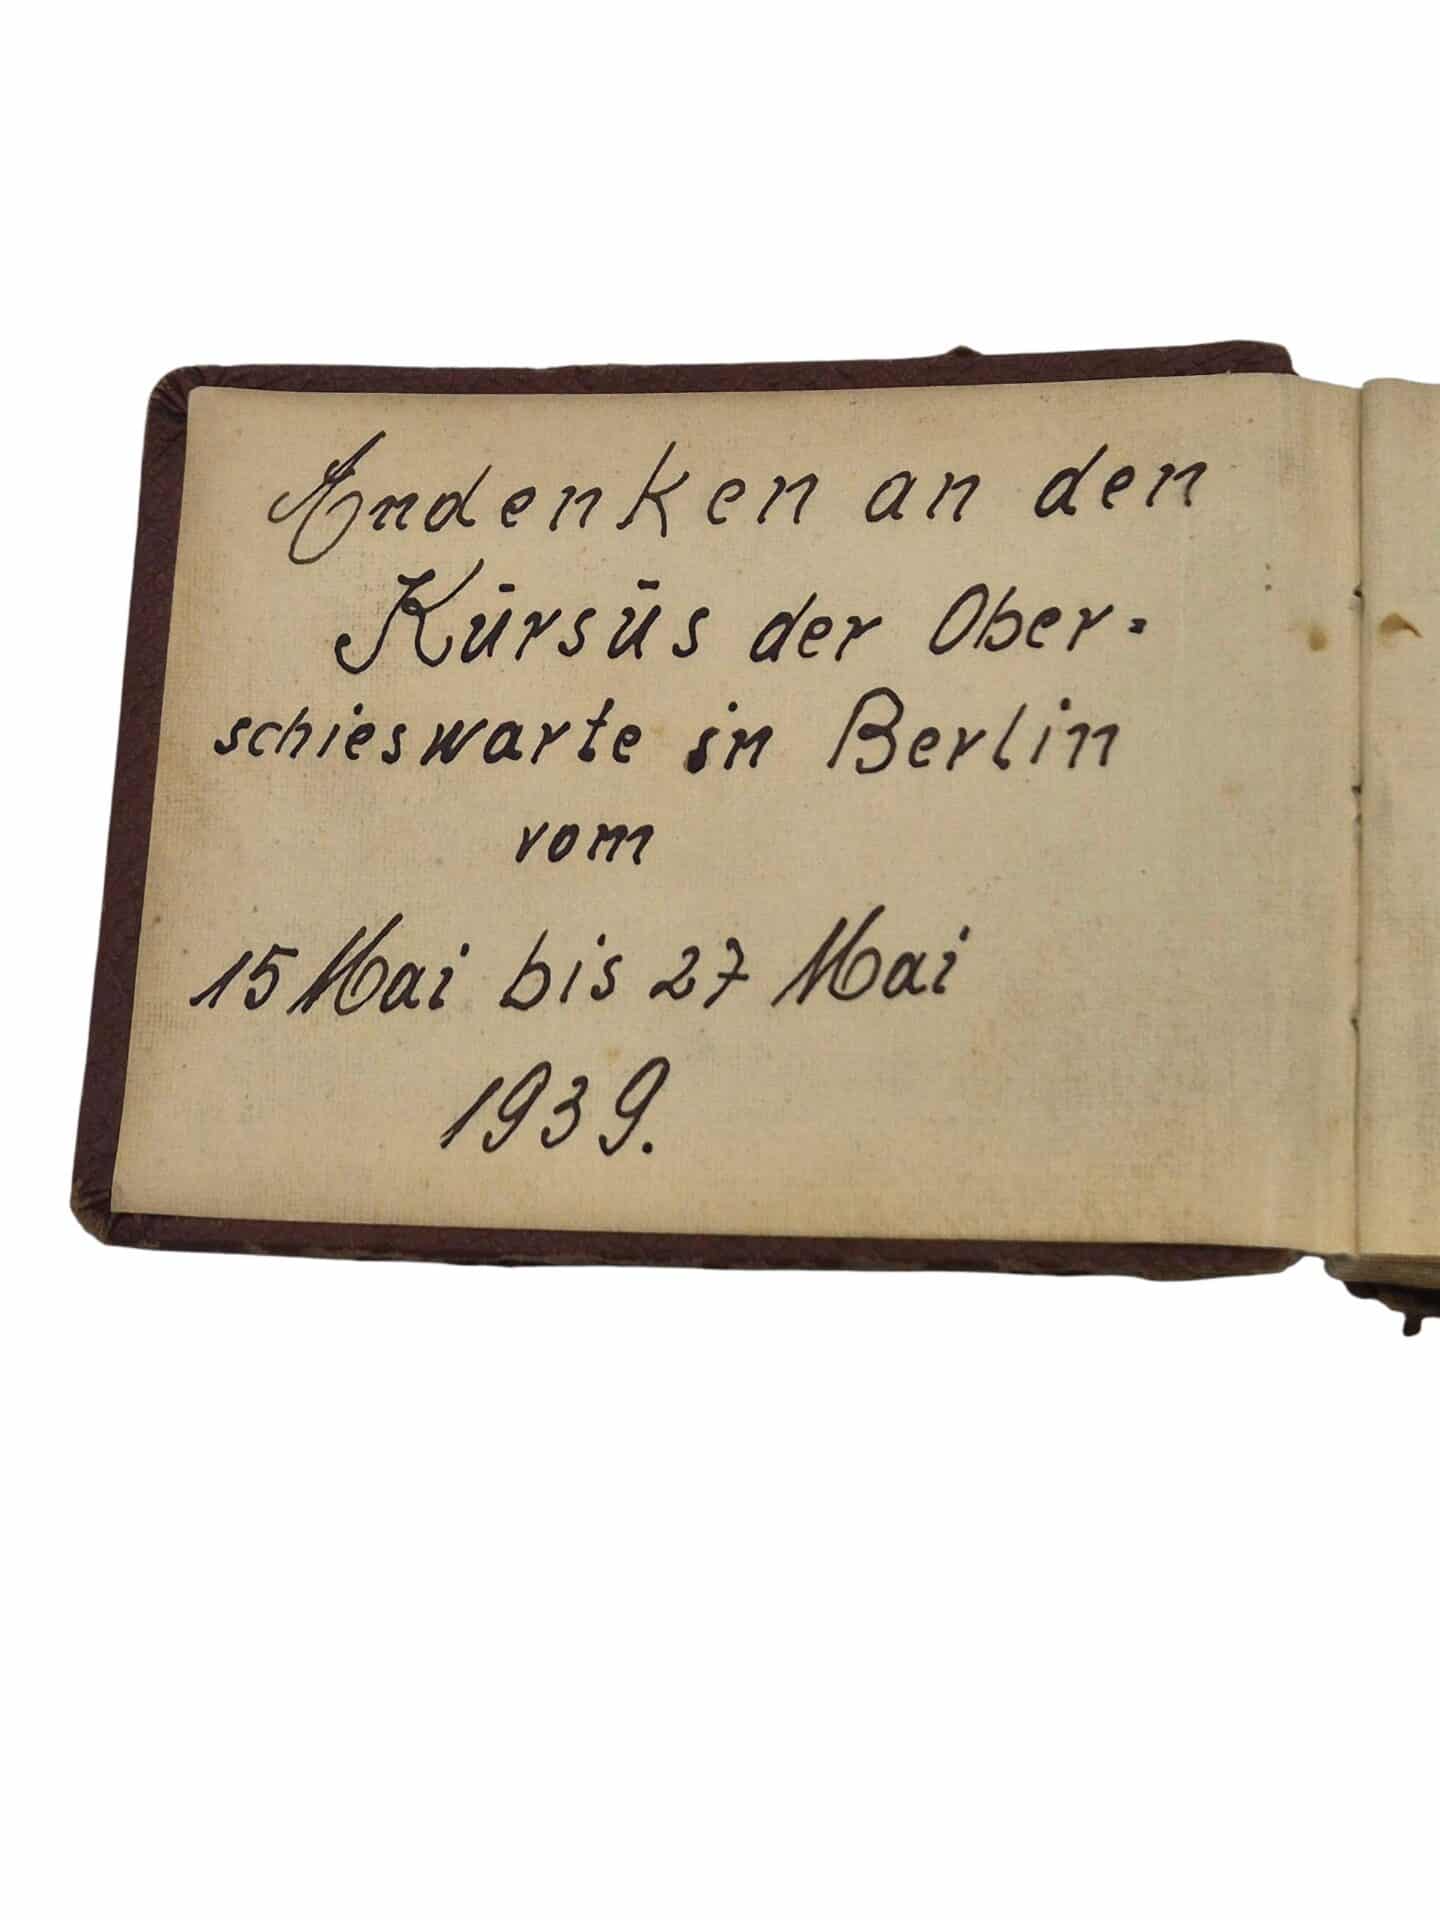 Andenken an den
Kūrsūs der Ober=
schieswarte in Berlin
vom
15 Mai bis 27 Mai
1939.